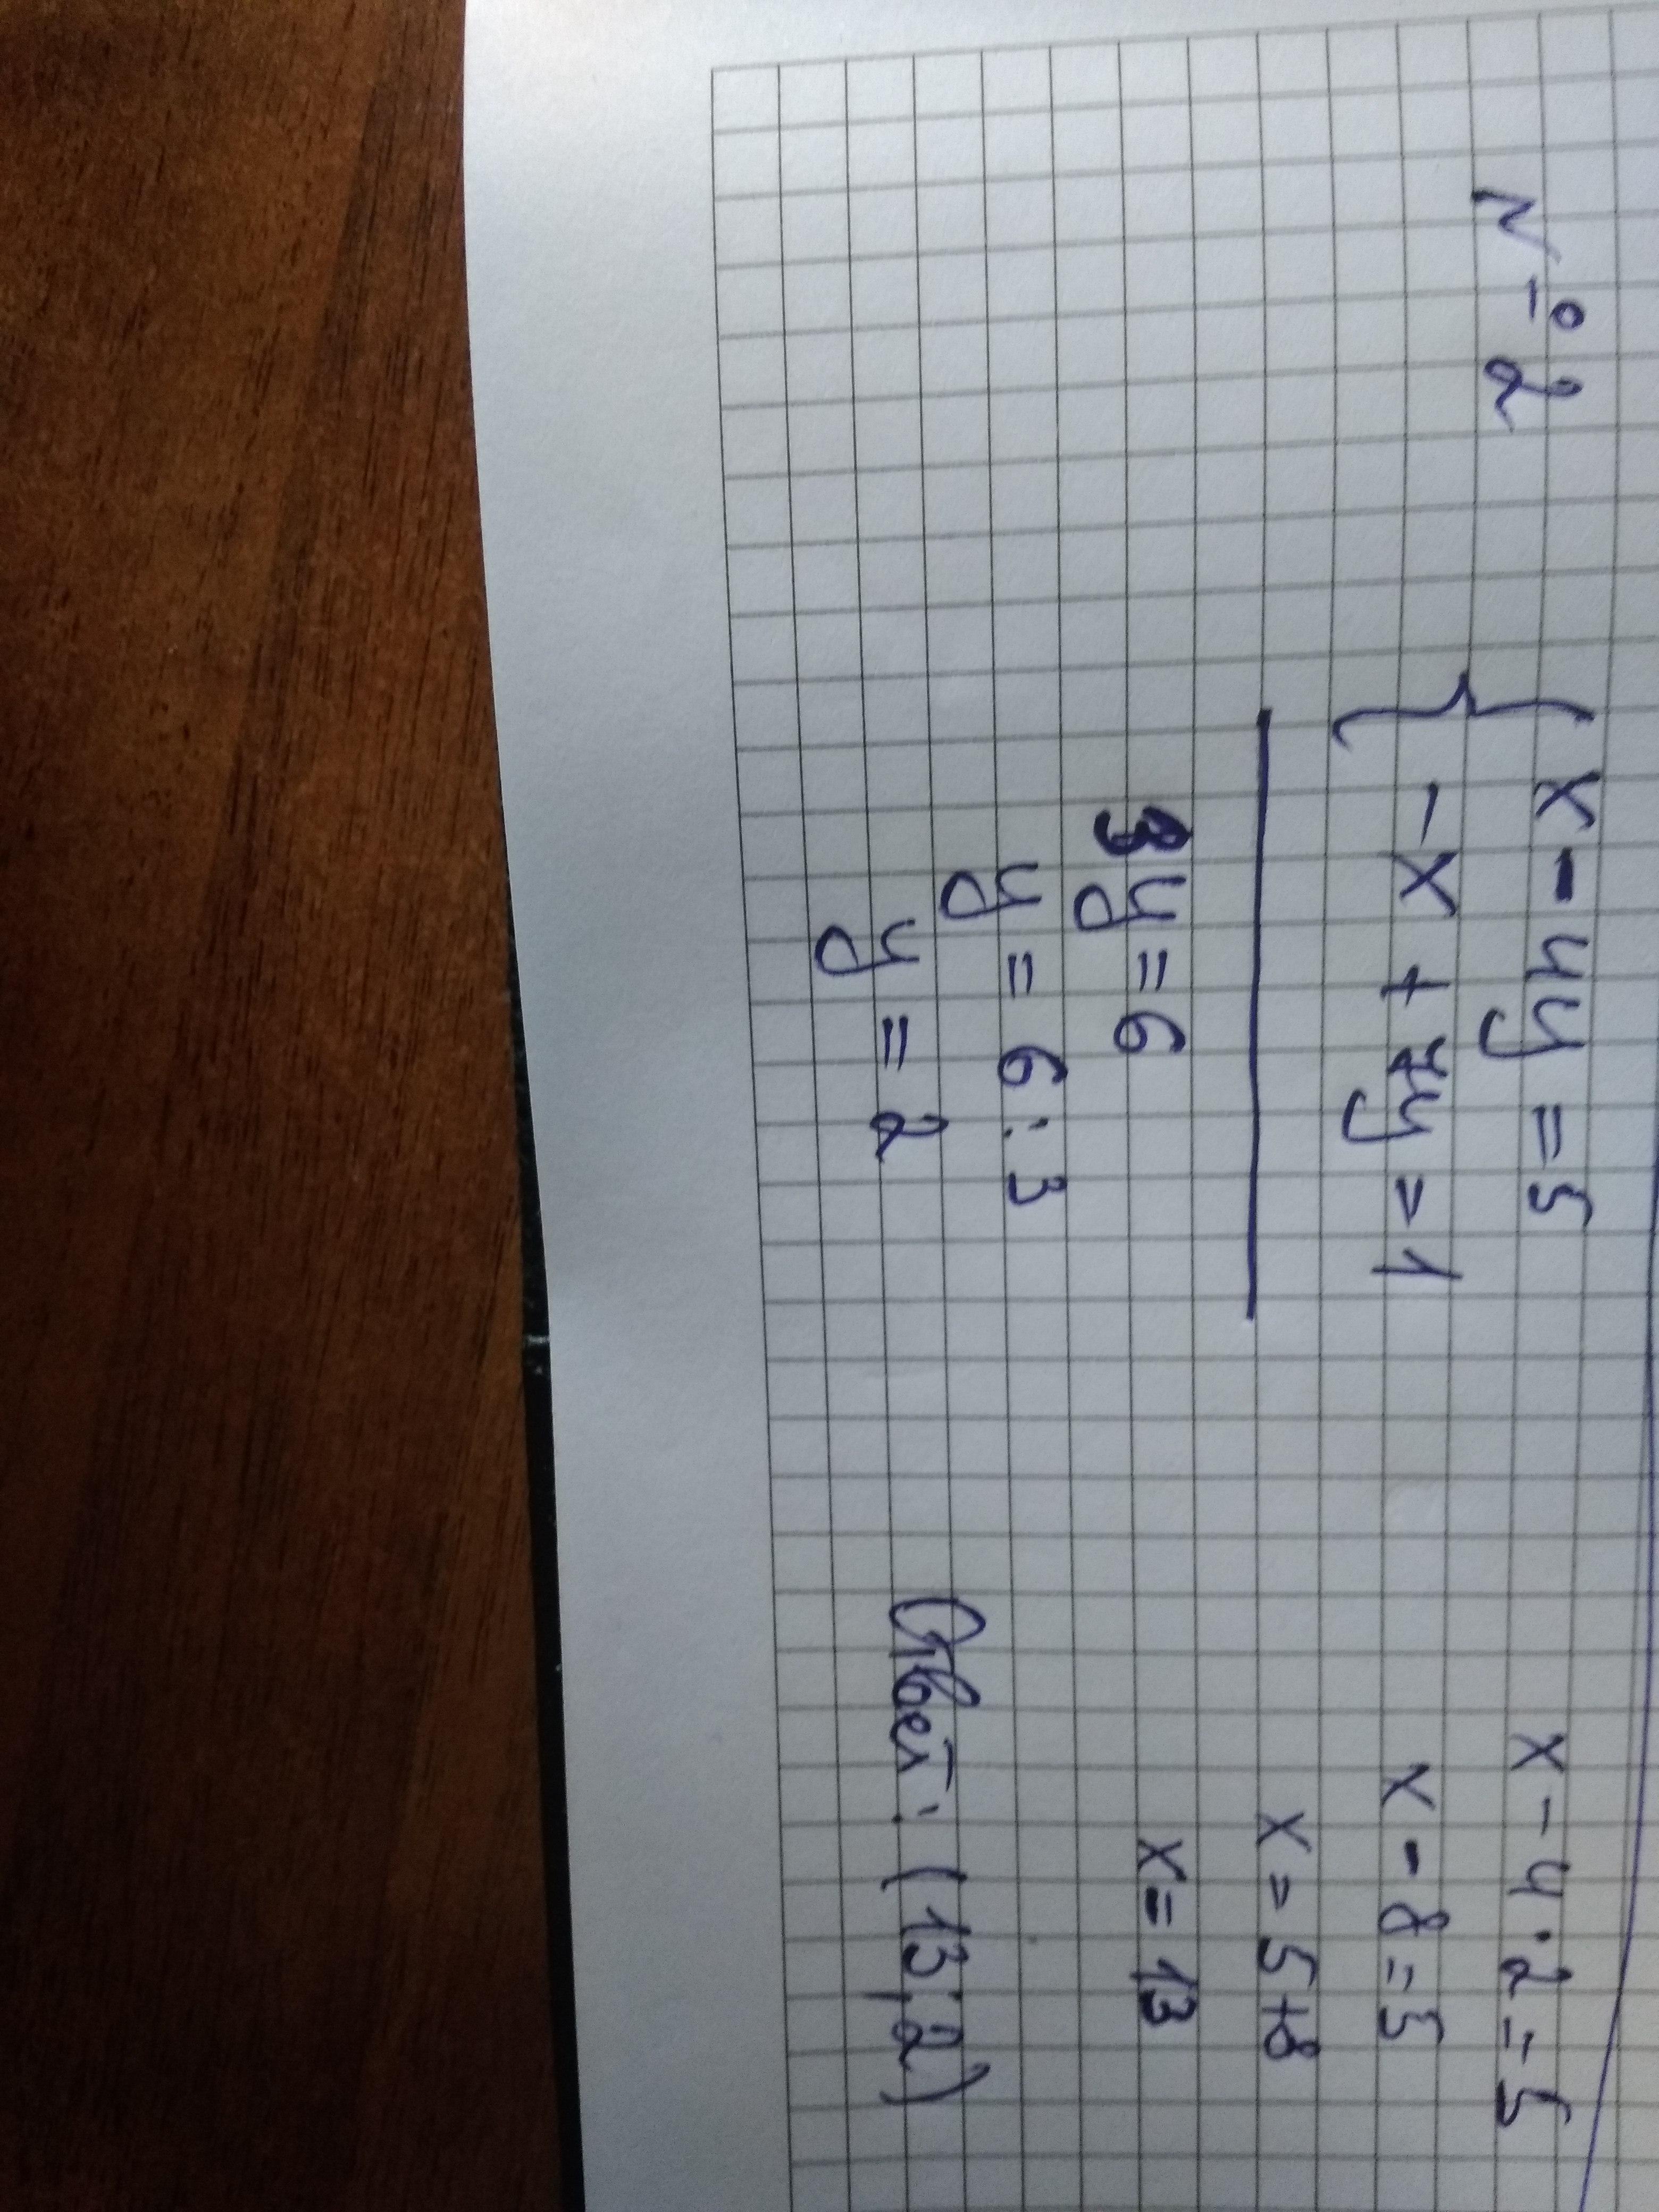 № 2
{ x - 4y = 5
- x + 7y = 1
3y = 6
y = 6 : 3
y = 2
x - 4 · 2 = 5
x - 8 = 5
x = 5 + 8
x = 13
Ответ: (13; 2)